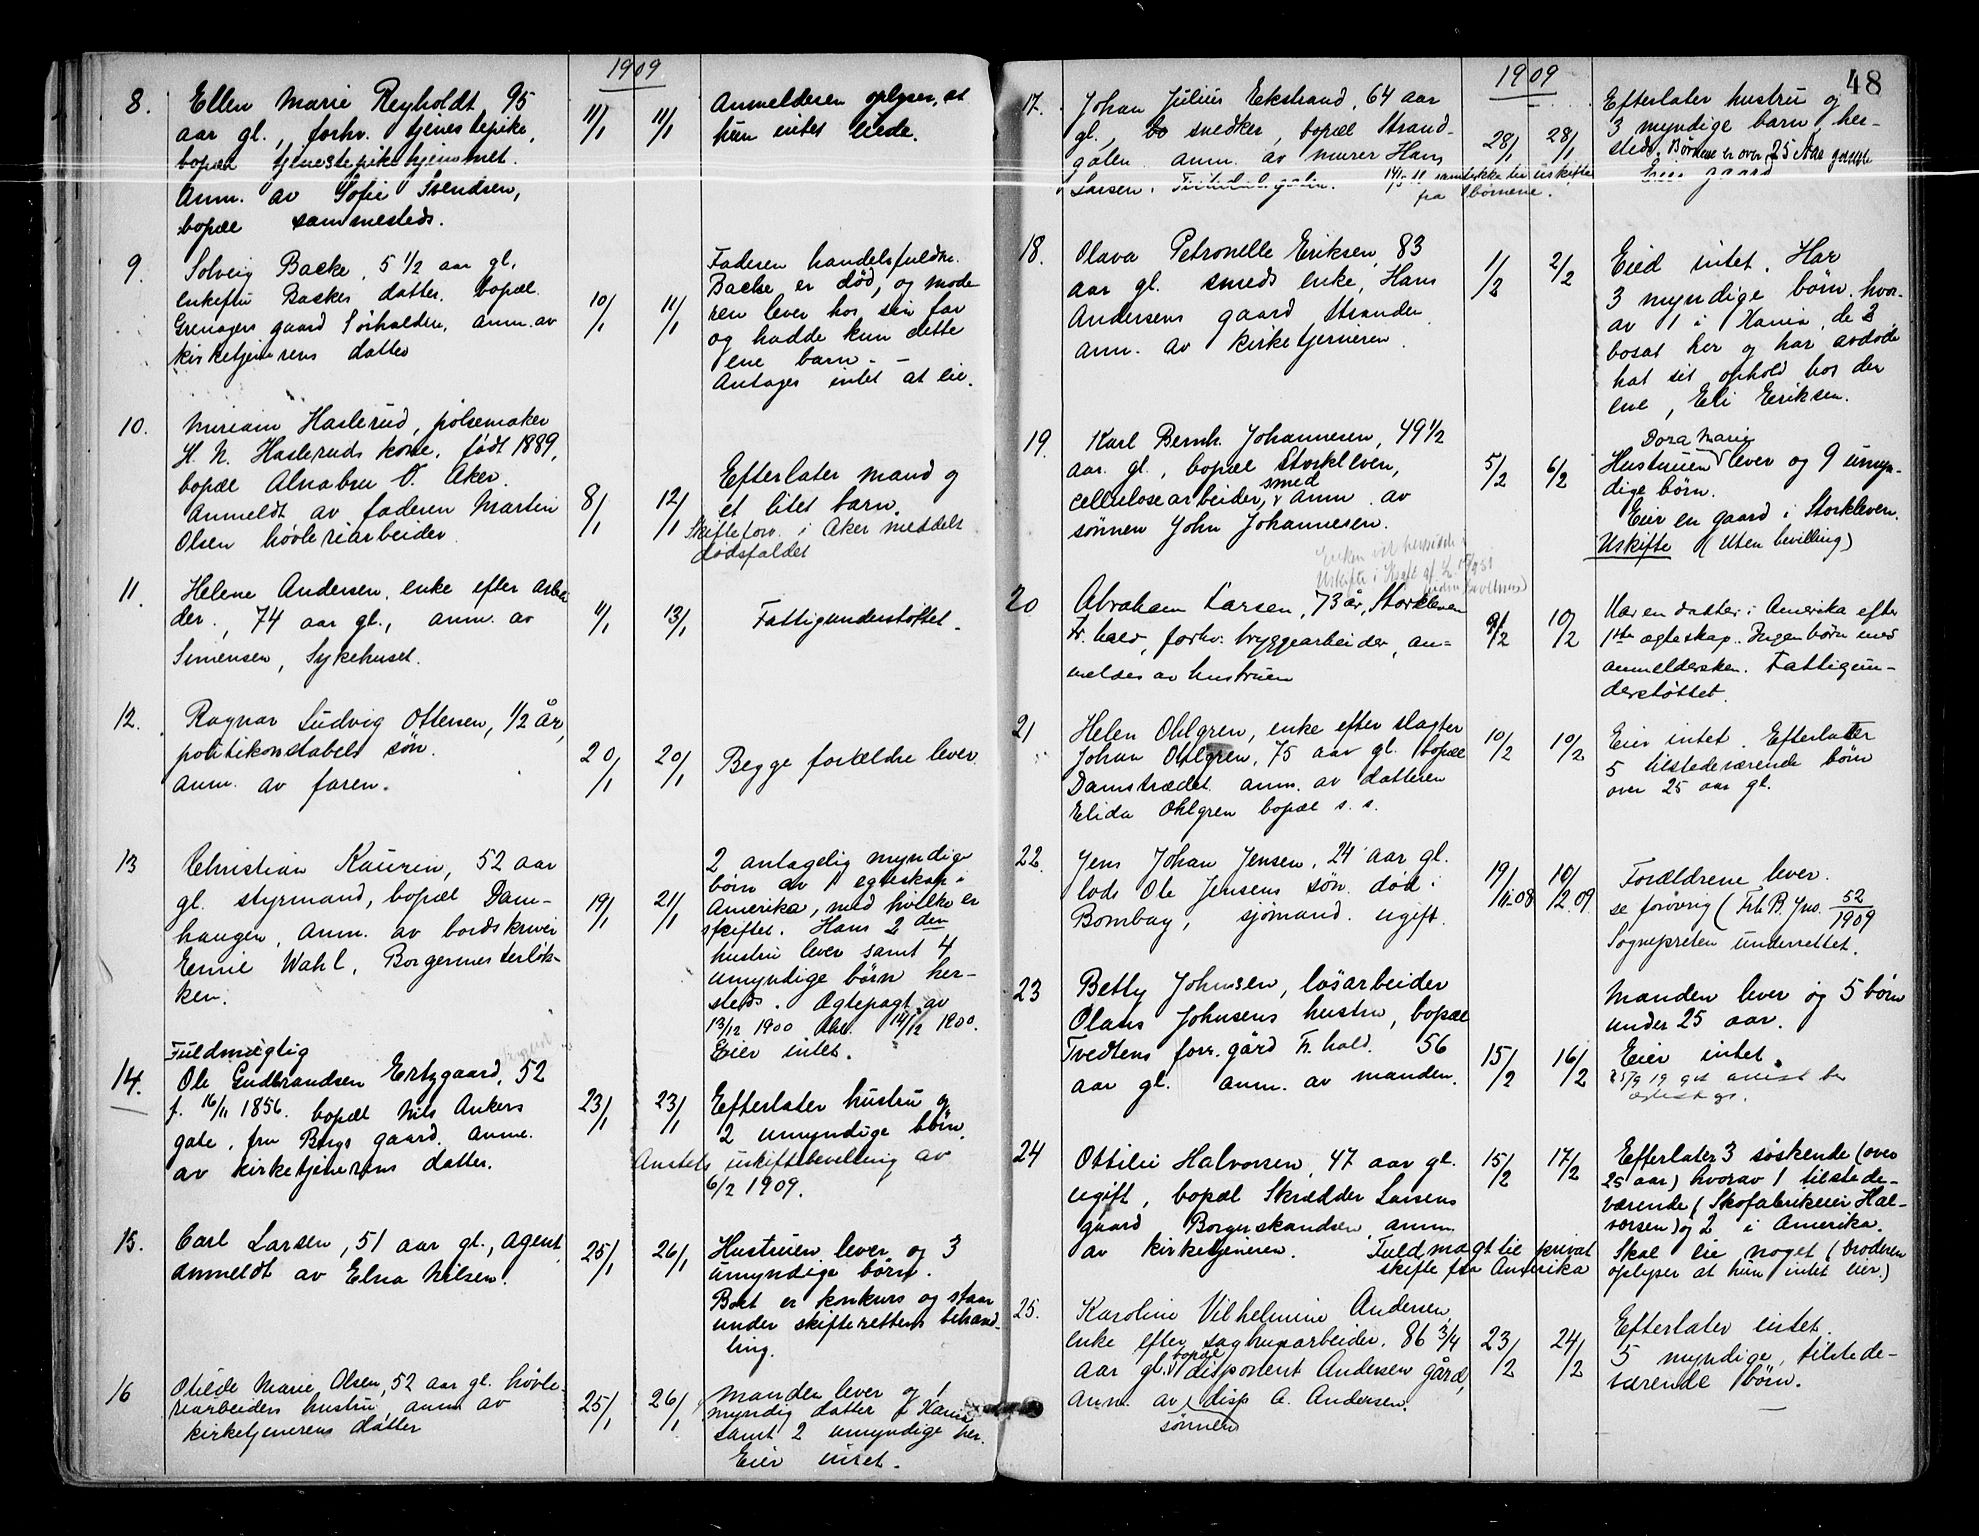 1909
8. Ellen Marie Reyholdt, 95
aar gl., forhv. tjenestepike,
bopæl tjenestepikehjemmet.
Anm. av Sofie Svendsen,
bopæl sammesteds.
11/1 11/1
Anmelderen oplyser, at
hun intet eiede.
9. Solveig Backe, 5 1/2 aar gl.
Backes datter, bopæl
Grenagers gaard Sørhalden, anm. av
kirketjenerens datter
10/1 11/1
Faderen handelsfuldm.
Backe er død, og mode
ren lever hos sin far
og hadde kun dette
ene barn. -
Antages intet at eie.
10. Miriam Haslerud, pølsemaker
H. N. Hasleruds kone, født 1889,
bopæl Alnabru V. Aker.
Anmeldt av faderen Martin
Olsen høvleriarbeider.
8/1 12/1
Efterlater mand og
et litet barn.
Skifteforv. i Aker meddelt
dødsfaldet
11. Helene Andersen, enke efter arbei
der, 74 aar gl., anm. av
Simensen, Sykehuset.
11/1 13/1
Fattigunderstøttet.
12. Ragnar Ludvig Ottersen, 1/2 år,
politikonstabels søn.
anm. av faren.
20/1 20/1
Begge forældre lever.
13 Christian Kaurin, 52 aar
gl. styrmand, bopæl Dam-
haugen, Anm. av bordskriver
Ernie Wahl, Borgermesterløk-
ken.
19/1 21/1
2 antagelig myndige
børn av 1 egteskap i
Amerika, med hvilke er
skiftet. Hans 2 den
hustru lever samt 4
umyndige børn her-
steds. Ægtepagt av
13/12 1900 14/12 1900.
Eier intet.
Fuldmægtig
14. Ole Gudbrandsen Ertzgaard, 52
f. 16/11 1856. bopæl Nils Ankers
gate, fru Bergs gaard. anm.
av kirketjenerens datter.
23/1 23/1
Efterlater hustru og
2 umyndige børn.
uskiftebevilling av
6/2 1909.
15. Carl Larsen, 51 aar gl., agent,
anmeldt av Elna Nilsen.
25/1 26/1
Hustruen lever og 3
umyndige børn.
Boet er konkurs og staar
under skifterettens behand-
ling.
16 Otilde Marie Olsen, 52 aar gl. høvle-
riarbeiders hustru, anm av
kirketjenerens datter
25/1 26/1
Manden lever og 1
myndig datter i Kania
samt 2 umyndige her.
Eier intet.
1909
48
17. Johan Julius Ekstrand, 64 aar
gl., snedker, bopæl Strand-
gaten. anm. av murer Hans
Larsen,
28/1 28/1
samtykke til uskifte
fra børnene.
Efterlater hustru og
3 myndige barn, her-
steds. Børnene er over 25 Aar gamle
Eier gaard
18. Olava Petronelle Eriksen, 83
aar gl. smeds enke, Hans
Andersens gaard Stranden
anm. av kirketjeneren.
1/2 2/2
Eied intet. Har
3 myndige børn, hvor-
av 1 i Kania, de 2
bosat her og har avdøde
hat sit ophold hos den
ene, Eli Eriksen.
19. Karl Bernh. Johannesen, 49 1/2
aar gl., bopæl Storkleven,
smed
cellulosearbeider, anm. av
sønnen John Johannesen.
5/2 6/2
Dora Marie
Hustruen lever og 9 umyn-
dige børn.
Eier en gaard i Storkleven.
Uskifte (uten bevilling)
Enken vil hensidde i
Uskifte i
20 Abraham Larsen, 73 år, Storkleven
Fr.hald, forhv. bryggearbeider, an-
meldes av hustruen
9/2 10/2
Har en datter i Amerika efter
1ste ægteskap. Ingen børn med
anmeldersken. Fattigun-
derstøttet.
21 Helen Ohlgren, enke efter slagter
Johan Ohlgren, 75 aar gl. bopæl
Damstrædet. anm. av datteren
Elida Ohlgren bopæl s. s.
10/2 10/2
Eier intet. Efterlater
5 tilstedeværende børn
over 25 aar gl.
22. Jens Johan Jensen, 24 aar gl.
lods Ole Jensens søn. død i
Bombay, sjømand. ugift.
19/11.08 10/2.09.
Forældrene lever.
se forøvrig (Frh B. Jno. 52/1909
Sognepresten underrettet.
23 Betty Johnsen, løsarbeider
Olaus Johnsens hustru, bopæl
Tvedtens forr. gård Fr.hald. 56
aar gl. anm. av manden.
15/2 16/2
Manden lever og 5 børn
under 25 aar.
Eier intet.
24 Ottilie Halvorsen, 47 aar gl.
ugift, bopæl Skrædder Larsens
gaard Borgerskandsen, anm.
av kirketjeneren.
15/2 17/2
Fuldmagt til privat
skifte fra Amerika
Efterlater 3 søskende (over
25 aar) hvorav 1 tilstede-
værende (Skofabrikeier Hal-
vorsen) og 2 i Amerika.
Skal eie noget (broderen
oplyser at hun intet eier.)
25. Karoline Vilhelmine Andersen,
enke efter saghusarbeider. 86 3/4
bopæl
aar gl. disponent Andersen gård,
anm. av disp A. Andersen.
sønnen
23/2 24/2
Efterlater intet.
5 myndige, tilstede-
værende børn.